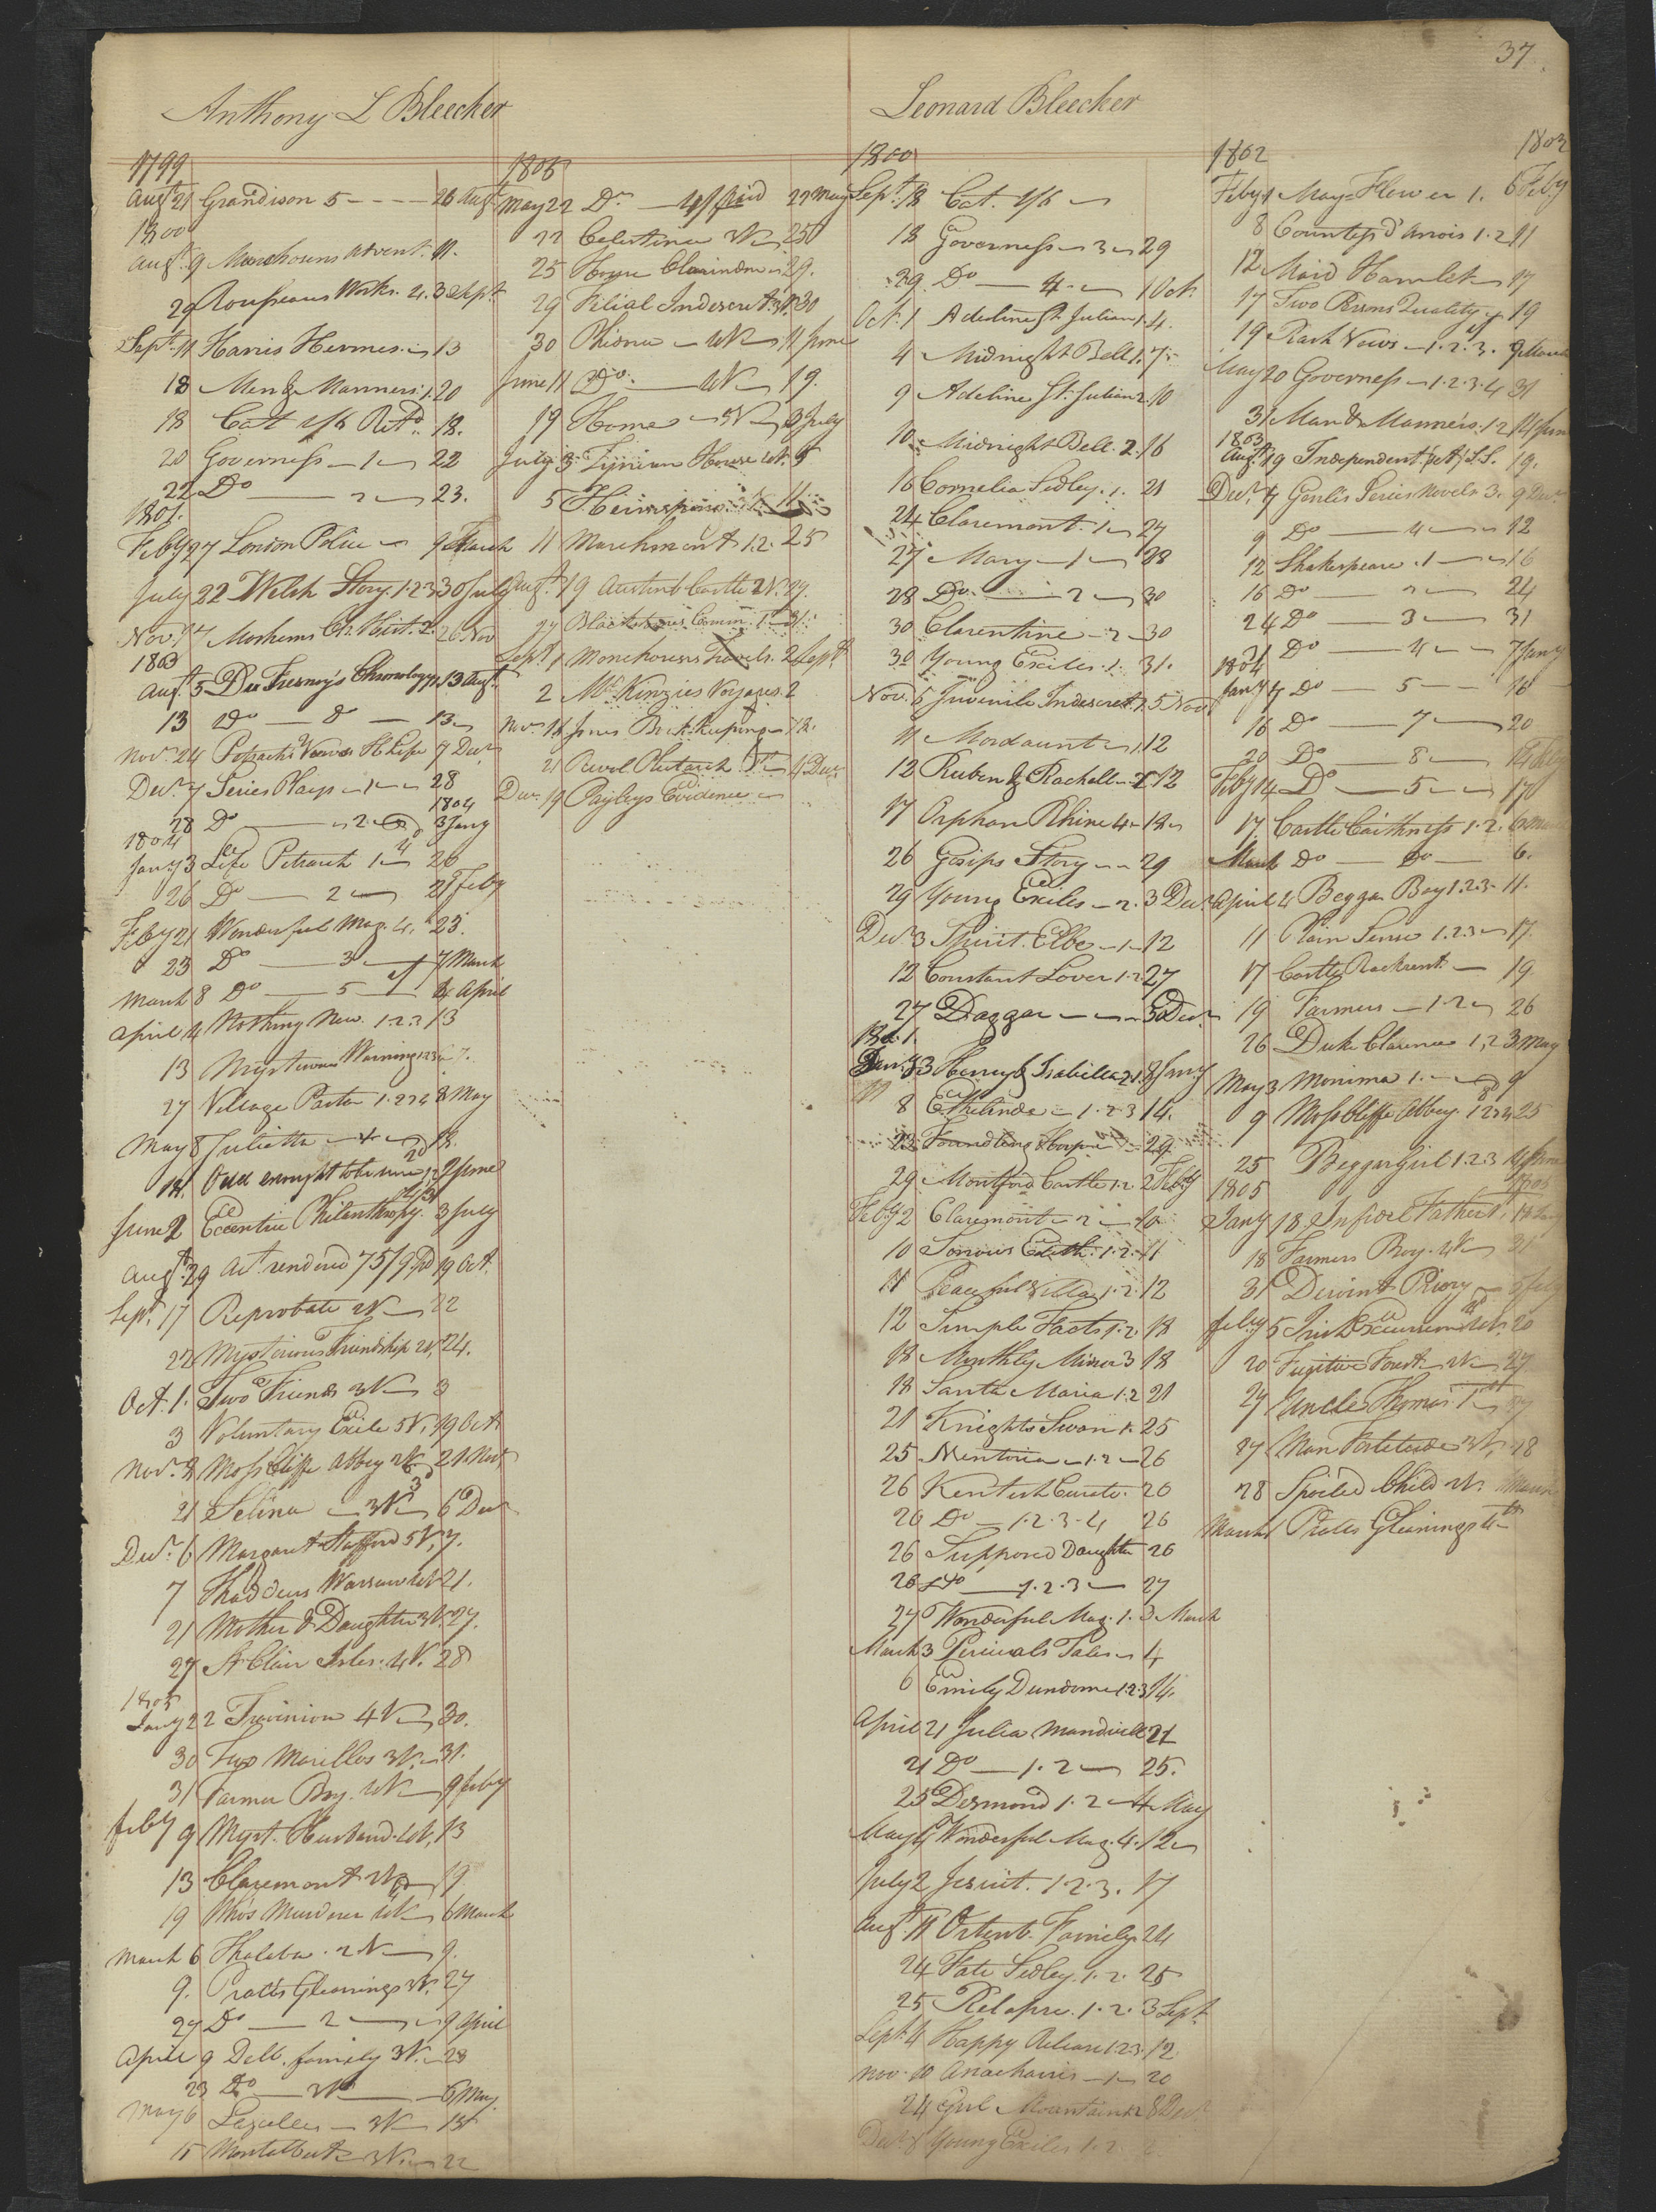 37
Anthony L Bleecker
1799
Augt 21 Grandison 5 - - - - 26 Augt
1800
Augt 9 advent. 11.
29 Rouseaus Works. 4. 3 Sept
Sept. 11 Harris Hermes 13
18 Men & Manners. 1. 20
18 Cat 1/6 Retd. 18.
20 Governess - 1 - 22
22 Do - 2 - 23.
1801.
Feby 27 London Police - 9 March
July 22 Welsh Story. 1.2.3 30 July
Nov. 17 Mosheims Ch. Hist. 2. 26 Nov
1803
Augt 5 Du Fresnoy's Chronology 13 Augt
13 Do - 13
Novr 24 Petrarch 7 Decr
Decr 7 Series Plays - 1 - 28
1804
28 Do - 2 - 3 Jany
1804
Jany 3 Life Petrarch 1 26
26 Do - 2 - 21 Feby
Feby 21 Wonderful Mag. 4. 23.
23 Do - 3 - 7 March
March 8 Do - 5 - 4 April
April 4 Nothing New. 1.2.3 13
13 Mysterious Warnings
27 Village Pastor 8 May
May 8 Julietta 18.
18. Odd enought to be sure 2 June
June 2 Eccentric Philanthropy. 3 July
Augt 29 act. rendered 75/9 pd 19 Oct.
Sept. 17 Reprobate 2V 22
22 Mysterious Friendship 2V, 24.
Oct. 1. Two Friends 3V 3
3 Voluntary Exile 5V, 19 Oct
Novr. Moss Cliffe Abbey 21 Nov
21 Selina - 3V 6 Decr
Decr 6 Margaret Stafford 5V, 7.
7 Thaddeus Warsaw 4V 21.
21 Mother & Daughter 3V. 27.
27 St Clair Isles. 4V. 28
1805
Jany 22 Trevinion 4V 30.
30 Two Marillos 3V. 31.
31 Farmer Boy. 4V 9 feby
feby 9 Myst. Husband. 4V, 13
13 Claremont 2V 19
19 Who's Murderer 4V 6 March
March 6 Thalaba. 2V 9.
9. Pratts Gleanings 3V. 27
27 Do - 2 - 9 April
April 9 Dell. family 3V. 23
23 Do - 3V - 6 May.
May 6 3V 15
15 Montalbert 3V. 22
May 22 Do - pd 22 May
22 Celestina 3V 25
25 House 29.
29 Filial Indiscret. 3V. 30
30 4V 11 June
June 11 Do - 4V 19.
19 Home - 5V 3 July
July 3 Tynian House 4V. 5
5 Hermsprong 11
11 Marchmont 1.2. 25
Augt. 19 Austinb Castle 2V. 27.
27 Blackstones Comm. 1 31.
Sept 1 Travels. 2 Sept
2 McKinzies Voyages. 2
Novr 16 Jones Book keeping 18.
21 Plutarch 4 Decr
Decr. 19 Payleys Evidence
Leonard Bleecker
1800
Sept. 18 Cat. 1/6
18 Governess - 3 - 29
29. Do - 4 - 1 Oct
Oct. 1 Adeline St. Julian 1. 4.
4 Midnight Bell 1. 7.
9 Adeline St. Julian 2. 10
10 Midnight Bell. 2. 16
16 Cornelia Sedley. 1. 21
24 Claremont. 1 27
27 Mary - 1 - 28
28 Do. - 2 - 30
30 Clarentine - 2 - 30
30 Young Exiles. 1. 31.
Nov. 5 Juvenile Indiscret. 1. 5 Nov
11 Mordaunt - 1. 12
12 Ruben & Rachell - 12
17 Orphan Rhine 4. 18
26 Gosips Story - 29
29 Young Exiles - 2. 3 Decr
Decr. 3 Spirit Elbe - 1 - 12
12 Constant Lover 1.2. 27
27 Dagger - 30 Decr
1801.
Jany 3 Henry & Isabella 2.1. 8 Jany
8 Ethelinda - 1.2.3 14.
23 Foundling 29
29 Montford Castle 1.2. 2 Feby
Feby 2 Claremont - 2 - 10
10 Sorrows Edith. 1.2. 11
11 Peaceful Villa 1.2. 12
12 Simple Facts 1.2. 18
18 Monthly Mirror 3 18
18 Santa Maria 1.2 21
21 Knights Swan 1. 25
25 Mentoria - 1.2 - 26
26 Kentish Curate. 26
26 Do - 1.2.3.4 26
26 Supposed Daughter 26
26 Do - 1.2.3 - 27
27 Wonderful Mag. 1. 3 March
March 3 Percivals Tales 4
6 Emily Dundorne 1.2.3 14.
April 21 Julia Mandvile 21
21 Do - 1.2 - 25.
25 Desmond 1.2 - 4 May
May 4 Wonderful Mag. 4. 12
July 2 Jesuit. 1.2.3. 17
Augt. 11 Ortenb. Family 24
24 Fate Sedley. 1.2. 25
25 Relapse. 1.2. 3 Sept.
Sept. 4 Happy Release 1.2.3. 12
Nov. 10 Anacharsis - 1 - 20
24 Girl Mountains 8 Decr
Decr. 8 Young Exiles 1.2.
1802 1802
Feby 1 May-Flower 1. 6 Feby
8 Countess d'Anois 1.2 11
12 Maid Hamlet 17
17 Two Persns Quality 19
19 Rash Vows - 1.2.3. March
May 20 Governess - 1.2.3.4 31
31 Man & Manners. 1.2 June
1803
Augt. 19 Independent 19.
Decr. 7 Genlis Series Novels 3. 9 Decr
9 Do - 4 - 12
12 Shakespeare. 1 - 16
16 Do - 2 - 24
24 Do - 3 - 31
31 Do - 4 - 7 Jany
1804
Jany 7 Do - 5 - 16
16 Do - 7 - 20
20 Do - 8 - 14 Feby
Feby 14 Do - 5 - 17
17. Castle Caithness 1.2. 6 March
March Do - Do - 6.
April 4 Beggar Boy 1.2.3. 11.
11 Plain Sense 1.2.3 17.
17 Castle Rackrent - 19.
19 Farmers - 1.2 26
26 Duke Clarence 1,2 3 May
May 3 Monima 1. 9
9 Moss Cliffe Abbey. 25
25 Beggar Girl 1.2.3 June
1805 1805
Jany 18 Infidel Father
18 Farmers Boy. 4V 31
31 Dewint Priory 5 feby
feby 5 Irish Excursion 4V. 20
20 Fugitive Forest 2V 27
27 Uncle Thomas 1st 27
27 Man Fortitude 3V, 28
28 Spoiled Child 2V.
March 1 Pratts Gleanings 4th